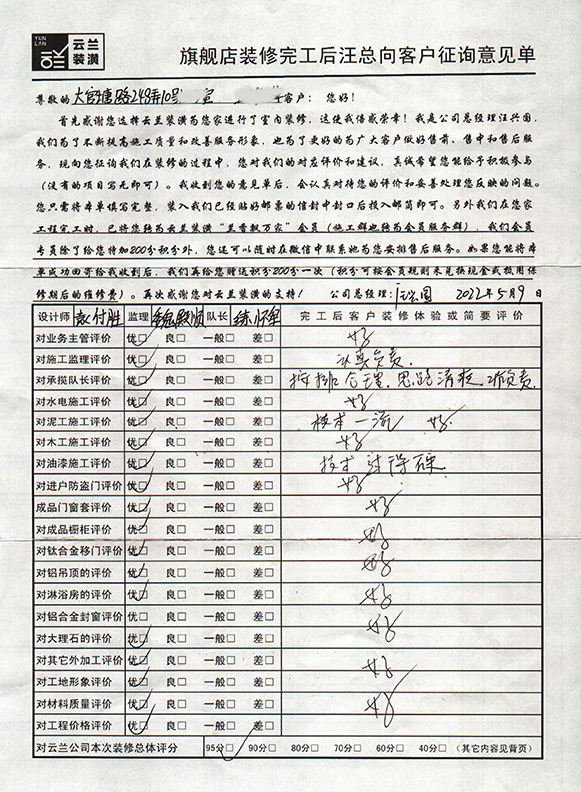 YUN LAN
云兰
装潢
旗舰店装修完工后汪总向客户征询意见单
尊敬的大宫唐路248弄10号 客户：您好！
首先感谢您选择云兰装潢为您家进行了室内装修，这使我倍感荣幸！我是公司总经理汪兴国，
我们为了不断提高施工质量和改善服务形象，也为了更好的为广大客户做好售前、售中和售后服
务，现向您征询我们在装修的过程中，您对我们的对应评价和建议，真诚希望您能给予积极参与
（没有的项目写无即可）。我收到您的意见单后，会认真对待您的评价和妥善处理您反映的问题。
您只需将本单填写完整，装入我们已经贴好邮票的信封中封口后投入邮筒即可。另外我们在您家
工程完工时，已将您转为云兰装潢“兰香飘万家”会员（施工群也转为会员服务群），我们会员
专员除了给您特加200分积分外，您还可以随时在微信中联系她为您安排售后服务。如果您能将本
单成功回寄给我收到后，我们再给您赠送积分200分一次（积分可按会员规则来兑换现金或抵用保
修期后的维修费）。再次感谢您对云兰装潢的支持！ 公司总经理： 2022年5月9日
设计师 监理 队长 完工后客户装修体验或简要评价
对业务主管评价 优□ 良□ 一般□ 差□ 好
对施工监理评价 优□ 良□ 一般□ 差□ 认真负责.
对承揽队长评价 优□ 良□ 一般□ 差□ 按排合理.思路清楚.
对水电施工评价 优□ 良□ 一般□ 差□ 好
对泥工施工评价 优□ 良□ 一般□ 差□ 技术一流 好
对木工施工评价 优□ 良□ 一般□ 差□ 好
对油漆施工评价 优□ 良□ 一般□ 差□ 技术过得硬
对进户防盗门评价 优□ 良□ 一般□ 差□ 好
成品门窗套评价 优□ 良□ 一般□ 差□ 好
对成品橱柜评价 优□ 良□ 一般□ 差□ 好
对钛合金移门评价 优□ 良□ 一般□ 差□ 好
对铝吊顶的评价 优□ 良□ 一般□ 差□ 好
对淋浴房的评价 优□ 良□ 一般□ 差□ 好
对铝合金封窗评价 优□ 良□ 一般□ 差□ 好
对大理石的评价 优□ 良□ 一般□ 差□
对其它外加工评价 优□ 良□ 一般□ 差□ 好
对工地形象评价 优□ 良□ 一般□ 差□
对材料质量评价 优□ 良□ 一般□ 差□ 好
对工程价格评价 优□ 良□ 一般□ 差□
对云兰公司本次装修总体评分 95分□ 90分□ 80分□ 70分□ 60分□ 40分□ （其它内容见背页）